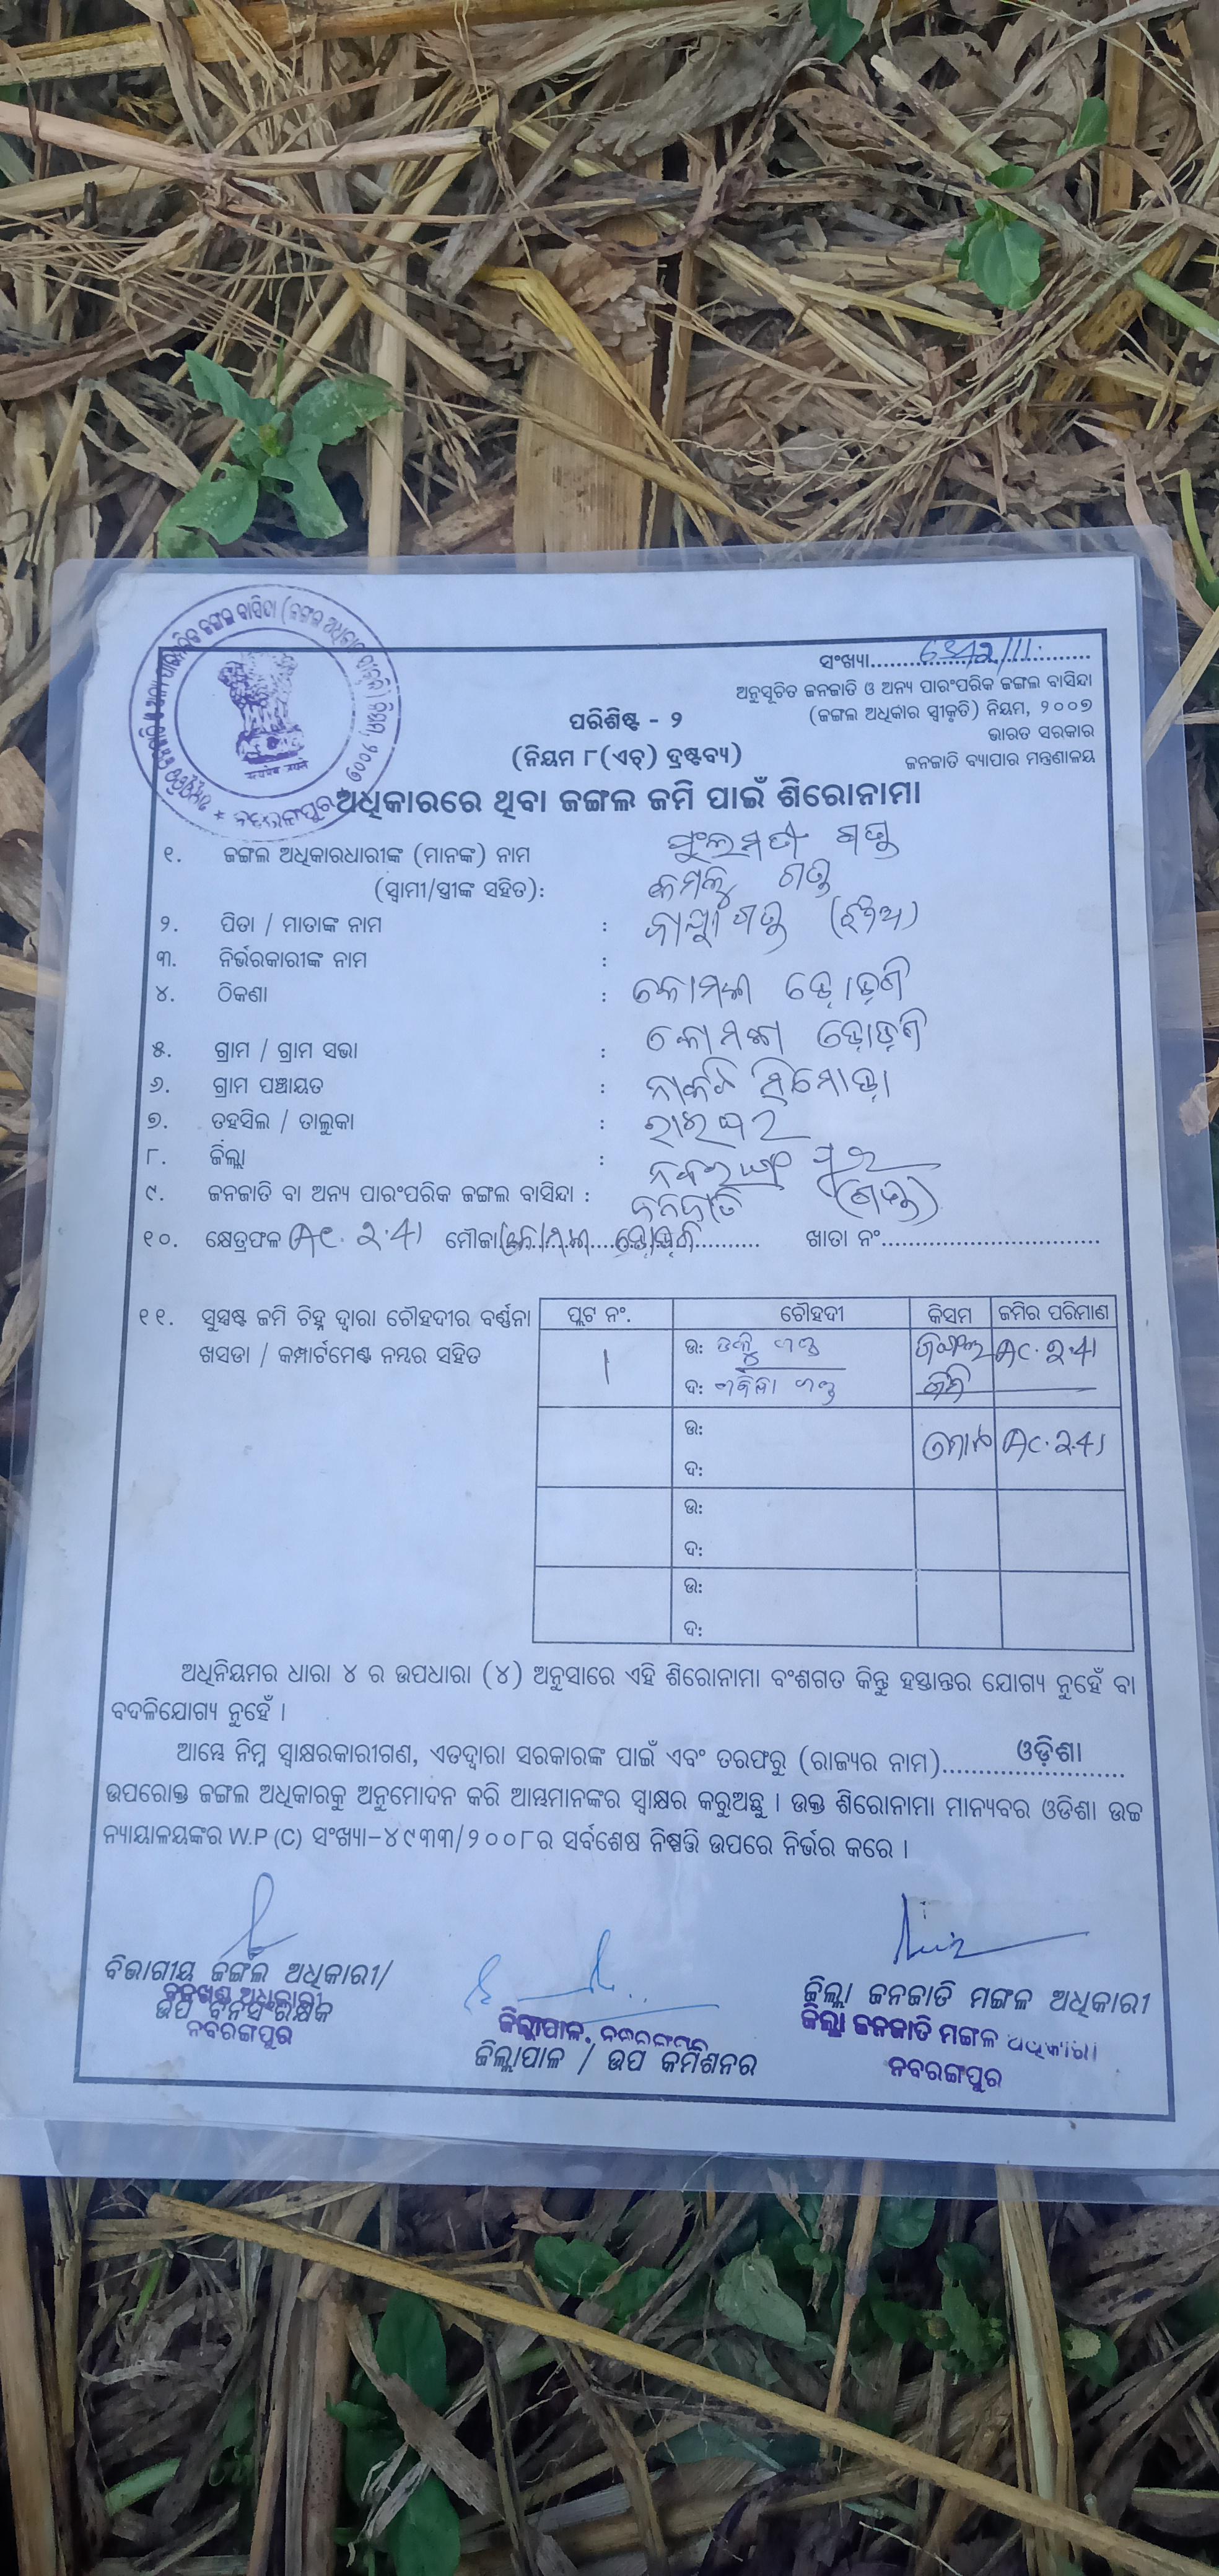 ସଂଖ୍ୟା......6312/11......
ଅନୁସୂଚିତ ଜନଜାତି ଓ ଅନ୍ୟ ପାରଂପରିକ ଜଙ୍ଗଲ ବାସିନ୍ଦା
(ଜଙ୍ଗଲ ଅଧିକାର ସ୍ୱୀକୃତି) ନିୟମ, ୨୦୦୭
ଭାରତ ସରକାର
ଜନଜାତି ବ୍ୟାପାର ମନ୍ତ୍ରଣାଳୟ
ପରିଶିଷ୍ଟ - ୨
(ନିୟମ ୮(ଏଚ୍) ଦ୍ରଷ୍ଟବ୍ୟ)
ଅଧିକାରରେ ଥିବା ଜଙ୍ଗଲ ଜମି ପାଇଁ ଶିରୋନାମା
୧. ଜଙ୍ଗଲ ଅଧିକାରଧାରୀଙ୍କ (ମାନଙ୍କ) ନାମ
(ସ୍ୱାମୀ/ସ୍ତ୍ରୀଙ୍କ ସହିତ):
୨. ପିତା / ମାତାଙ୍କ ନାମ :
୩. ନିର୍ଭରକାରୀଙ୍କ ନାମ :
୪. ଠିକଣା :
୫. ଗ୍ରାମ / ଗ୍ରାମ ସଭା :
୬. ଗ୍ରାମ ପଞ୍ଚାୟତ :
୭. ତହସିଲ / ତାଲୁକା : ରାଇଘର
୮. ଜିଲ୍ଲା : ନବରଙ୍ଗପୁର
୯. ଜନଜାତି ବା ଅନ୍ୟ ପାରଂପରିକ ଜଙ୍ଗଲ ବାସିନ୍ଦା : ଜନଜାତି (ଗଣ୍ଡ)
୧୦. କ୍ଷେତ୍ରଫଳ AC. 2.41 ମୌଜା ............ ଖାତା ନଂ............
୧୧. ସୁସ୍ପଷ୍ଟ ଜମି ଚିହ୍ନ ଦ୍ୱାରା ଚୌହଦୀର ବର୍ଣ୍ଣନା
ଖସଡା / କମ୍ପାର୍ଟମେଣ୍ଟ ନମ୍ବର ସହିତ
ପ୍ଲଟ ନଂ. ଚୌହଦୀ କିସମ ଜମିର ପରିମାଣ
1 ଉ: ଜଙ୍ଗଲ AC. 2.41
ଦ: ଜମି
ଉ: ମୋଟ AC. 2.41
ଦ:
ଉ:
ଦ:
ଉ:
ଦ:
ଅଧିନିୟମର ଧାରା ୪ ର ଉପଧାରା (୪) ଅନୁସାରେ ଏହି ଶିରୋନାମା ବଂଶଗତ କିନ୍ତୁ ହସ୍ତାନ୍ତର ଯୋଗ୍ୟ ନୁହେଁ ବା
ବଦଳିଯୋଗ୍ୟ ନୁହେଁ ।
ଆମ୍ଭେ ନିମ୍ନ ସ୍ୱାକ୍ଷରକାରୀଗଣ, ଏତଦ୍ୱାରା ସରକାରଙ୍କ ପାଇଁ ଏବଂ ତରଫରୁ (ରାଜ୍ୟର ନାମ)......ଓଡ଼ିଶା......
ଉପରୋକ୍ତ ଜଙ୍ଗଲ ଅଧିକାରକୁ ଅନୁମୋଦନ କରି ଆମ୍ଭମାନଙ୍କର ସ୍ୱାକ୍ଷର କରୁଅଛୁ । ଉକ୍ତ ଶିରୋନାମା ମାନ୍ୟବର ଓଡିଶା ଉଚ୍ଚ
ନ୍ୟାୟାଳୟଙ୍କର W.P (C) ସଂଖ୍ୟା-୪୯୩୩/୨୦୦୮ର ସର୍ବଶେଷ ନିଷ୍ପତ୍ତି ଉପରେ ନିର୍ଭର କରେ ।
ବିଭାଗୀୟ ଜଙ୍ଗଲ ଅଧିକାରୀ/
ବନଖଣ୍ଡ ଅଧିକାରୀ
ଉପ ବନସଂରକ୍ଷକ
ନବରଙ୍ଗପୁର
ଜିଲ୍ଲାପାଳ, ନବରଙ୍ଗପୁର
ଜିଲ୍ଲାପାଳ / ଉପ କମିଶନର
ଜିଲ୍ଲା ଜନଜାତି ମଙ୍ଗଳ ଅଧିକାରୀ
ଜିଲ୍ଲା ଜନଜାତି ମଙ୍ଗଳ ଅଧିକାରୀ
ନବରଙ୍ଗପୁର